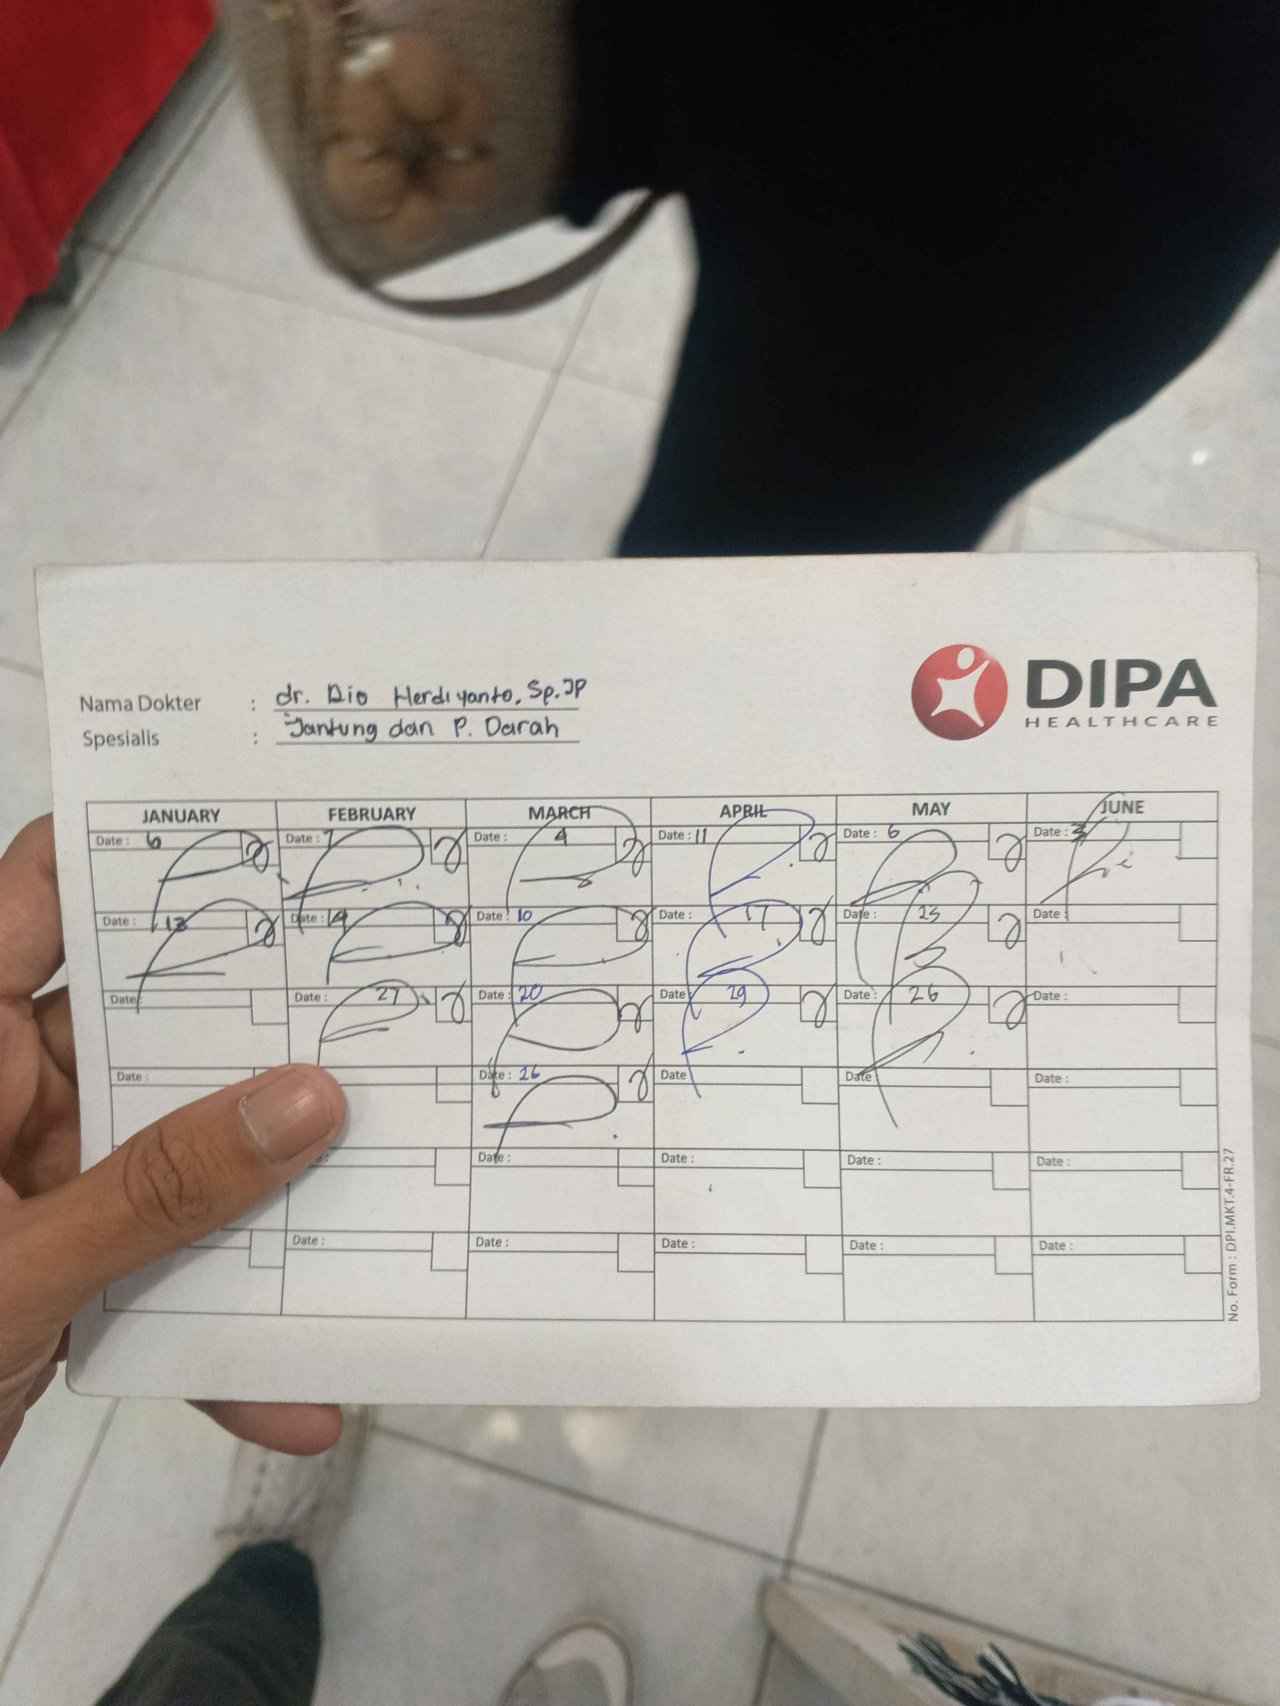 Nama Dokter : dr. Dio Herdiyanto, Sp.JP
Spesialis : Jantung dan P. Darah
DIPA
HEALTHCARE
JANUARY FEBRUARY MARCH APRIL MAY JUNE
Date : 6 Date : 7 Date : 4 Date : 11 Date : 6 Date : 3
Date : 13 Date : 14 Date : 10 Date : 17 Date : 23 Date :
Date : Date : 27 Date : 20 Date : 29 Date : 26 Date :
Date : Date : 26 Date Date Date :
Date : Date : Date : Date :
Date : Date : Date : Date : Date :
No. Form : DPI.MKT.4-FR.27